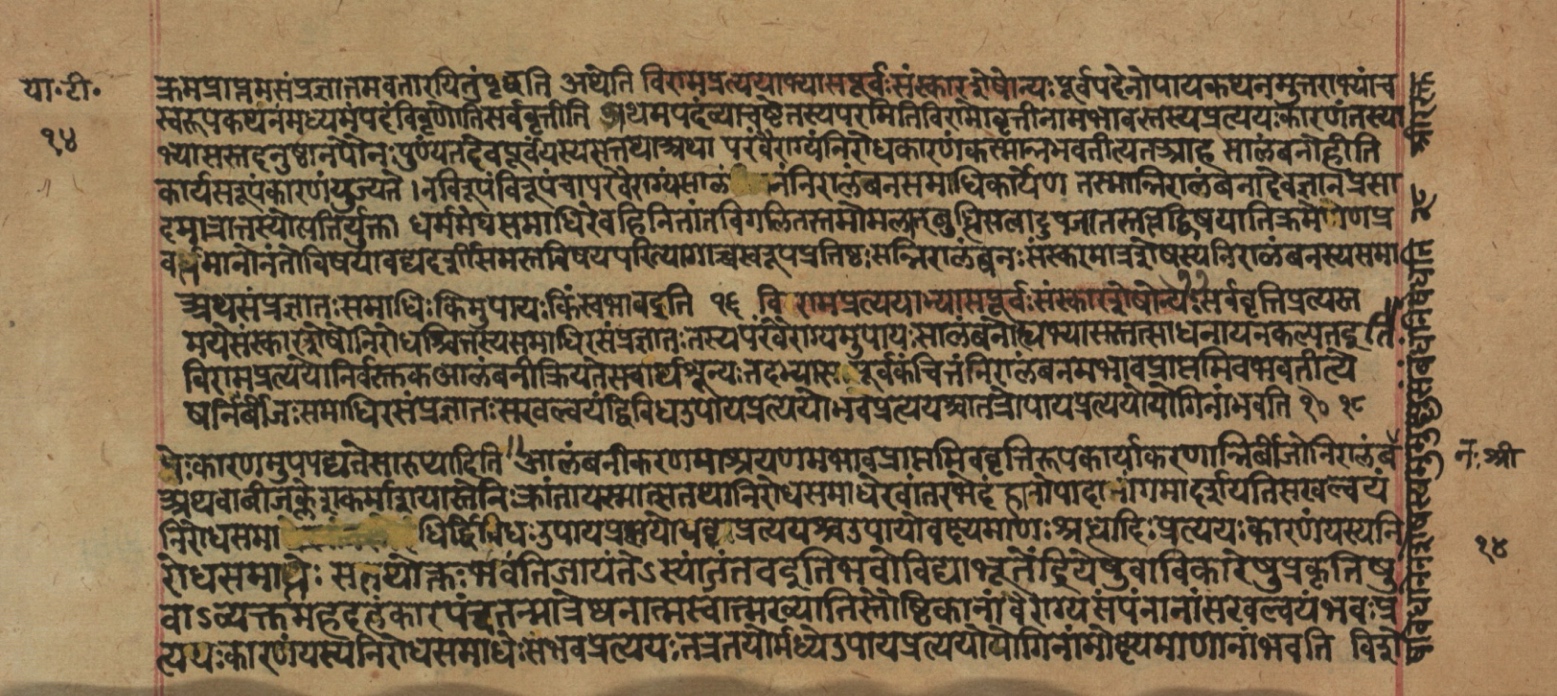 या॰टी॰
१४
क्रमप्राप्तमसंप्रज्ञातमवतारयितुंपृछति अथेति विरामप्रत्ययाभ्यासपूर्वःसंस्कारशेषोन्यः पूर्वपदेनोपायकथनमुत्तराभ्यांच
स्वरूपकथनंमध्यमंपदंविवृणोतिसर्ववृत्तीति प्रथमपदंव्याचष्टेतस्यपरमितिविरामोवृत्तीनामभावस्तस्यप्रत्ययःकारणंतस्या
भ्यासस्तदनुष्ठानंपौनःपुण्यंतदेवपूर्वंयस्यसतथाअथा परंवैराग्यंनिरोधकारणंकस्मान्नभवतीत्यतआह सालंबनोहीति
कार्यसरूपंकारणंयुज्यते ।नविरूपंविरूपंचापरवैराग्यंसालं नंनिरालंबनसमाधिकार्येण तस्मान्निरालंबनादेवज्ञानप्रसा
दमात्रात्तस्योत्पत्तिर्युक्ता धर्ममेघसमाधिरेवहिनितांतविगलितरजस्तमोमलात् बुद्धिसत्वादुपजातस्तत्तद्विषयातिक्रमेणप्र
वर्त्तमानोनंतोविषयावद्यदर्शीसमस्तविषयपरित्यागाच्चस्वरूपप्रतिष्ठःसन्निरालंबनःसंस्कारमात्रशेषस्यनिरालंबनस्यसमा
अथसंप्रज्ञातःसमाधिःकिमुपायःकिंस्वभावइति १६ वि रामप्रत्ययाभ्यासपूर्वःसंस्कारशेषोन्यःसर्ववृत्तिप्रत्यस्त
मयेसंस्कारशेषोनिरोधश्चित्तस्यसमाधिरसंप्रज्ञातःतस्यपरंवैराग्यमुपायःसालंबनोह्यभ्यासस्तत्साधनायनकल्पतइति
विरामप्रत्ययोनिर्वस्तुकआलंबनीक्रियतेसचार्थशून्यःतदभ्यास पूर्वकंचित्तंनिरालंबनमभावप्राप्तमिवभवतीत्ये
षनिर्बीजःसमाधिरसंप्रज्ञातःसखल्वयंद्विविधउपायप्रत्ययोभवप्रत्ययश्चातत्रोपायप्रत्ययोयोगिनांभवति १७ १८
धेःकारणमुपपद्यतेसारूप्यादिति आलंबनीकरणमाश्रयणमभावप्राप्तमिववृत्तिरूपकार्याकरणान्निर्बीजोनिरालंब
नः श्री
अथवाबीजंक्लेशकर्माशयास्तेनिःक्रांतायस्मात्सतथानिरोधसमाधेरवांतरभेदं हानोपादानांगमादर्शयतिसखल्वयं
निरोधसमा धिर्द्विविधःउपायप्रत्ययोभवप्रत्ययश्चउपायोवक्ष्यमाणःश्रद्धादिःप्रत्ययःकारणंयस्यनि
१४
रोधसमाधेः सतथोक्तःभवंतिजायंतेऽस्यांजंतवइतिभवोविद्याभूतेंद्रियेषुवाविकारेषुप्रकृतिषु
वाऽव्यक्तमहदहंकारपंचतन्मात्रेष्वनात्मस्वात्मख्यातिस्तौष्टिकानांवैराग्यसंपंनानांसखल्वयंभवःप्र
त्ययःकारणंयस्यनिरोधसमाधेःसभवप्रत्ययःतत्रतयोर्मध्येउपायप्रत्ययोयोगिनांमोक्ष्यमाणानांभवति विशे